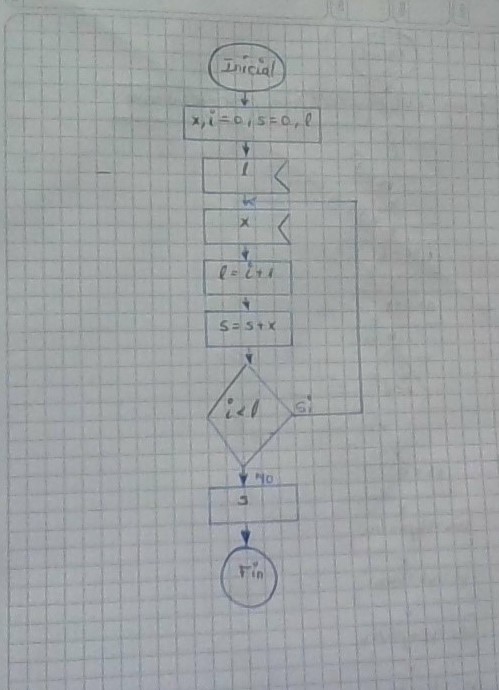 Inicial
x, i=0, s=0, l
l
x
l=i+1
s=s+x
i<l
si
no
s
Fin